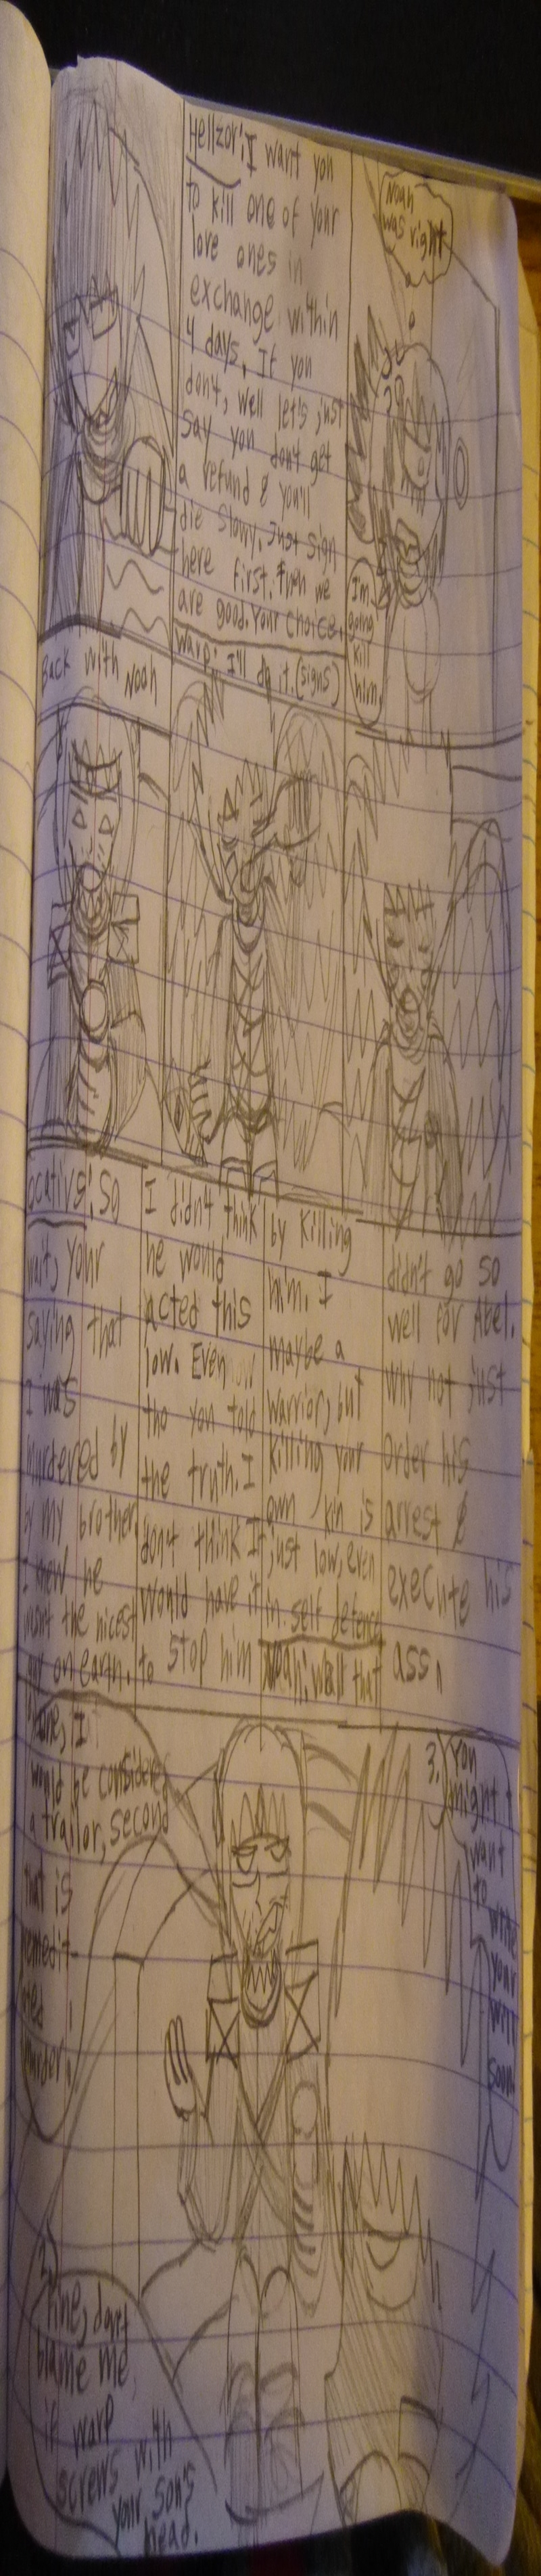 Hellzor: I want you
to kill one of your
love ones in
exchange within
4 days. If you
don't, well let's just
say you don't get
a refund & you'll
die slowy. Just sign
here first. Then we
are good. Your choice.
Warp: I'll do it. (signs)
Noah
was right
I'm
going
kill
him
Back with Noah
So
wait, your
saying that
I was
murdered by
by my brother.
I knew he
wasn't the nicest
on earth.
I didn't think
he would
acted this
low. Even
tho you told
the truth. I
don't think I
would have it
to stop him
by killing
him. I
maybe a
warrior, but
killing your
own kin is
just low, even
in self defence
Noah: Well that
didn't go so
well for Abel.
Why not just
order his
arrest &
execute his
ass.
I
would be considered
a traitor, second
that is
premedit-
ated
murder.
2.
Fine, don't
blame me
if warp
screws with
your son's
head.
3. You
might
want
to
write
your
will
soon.